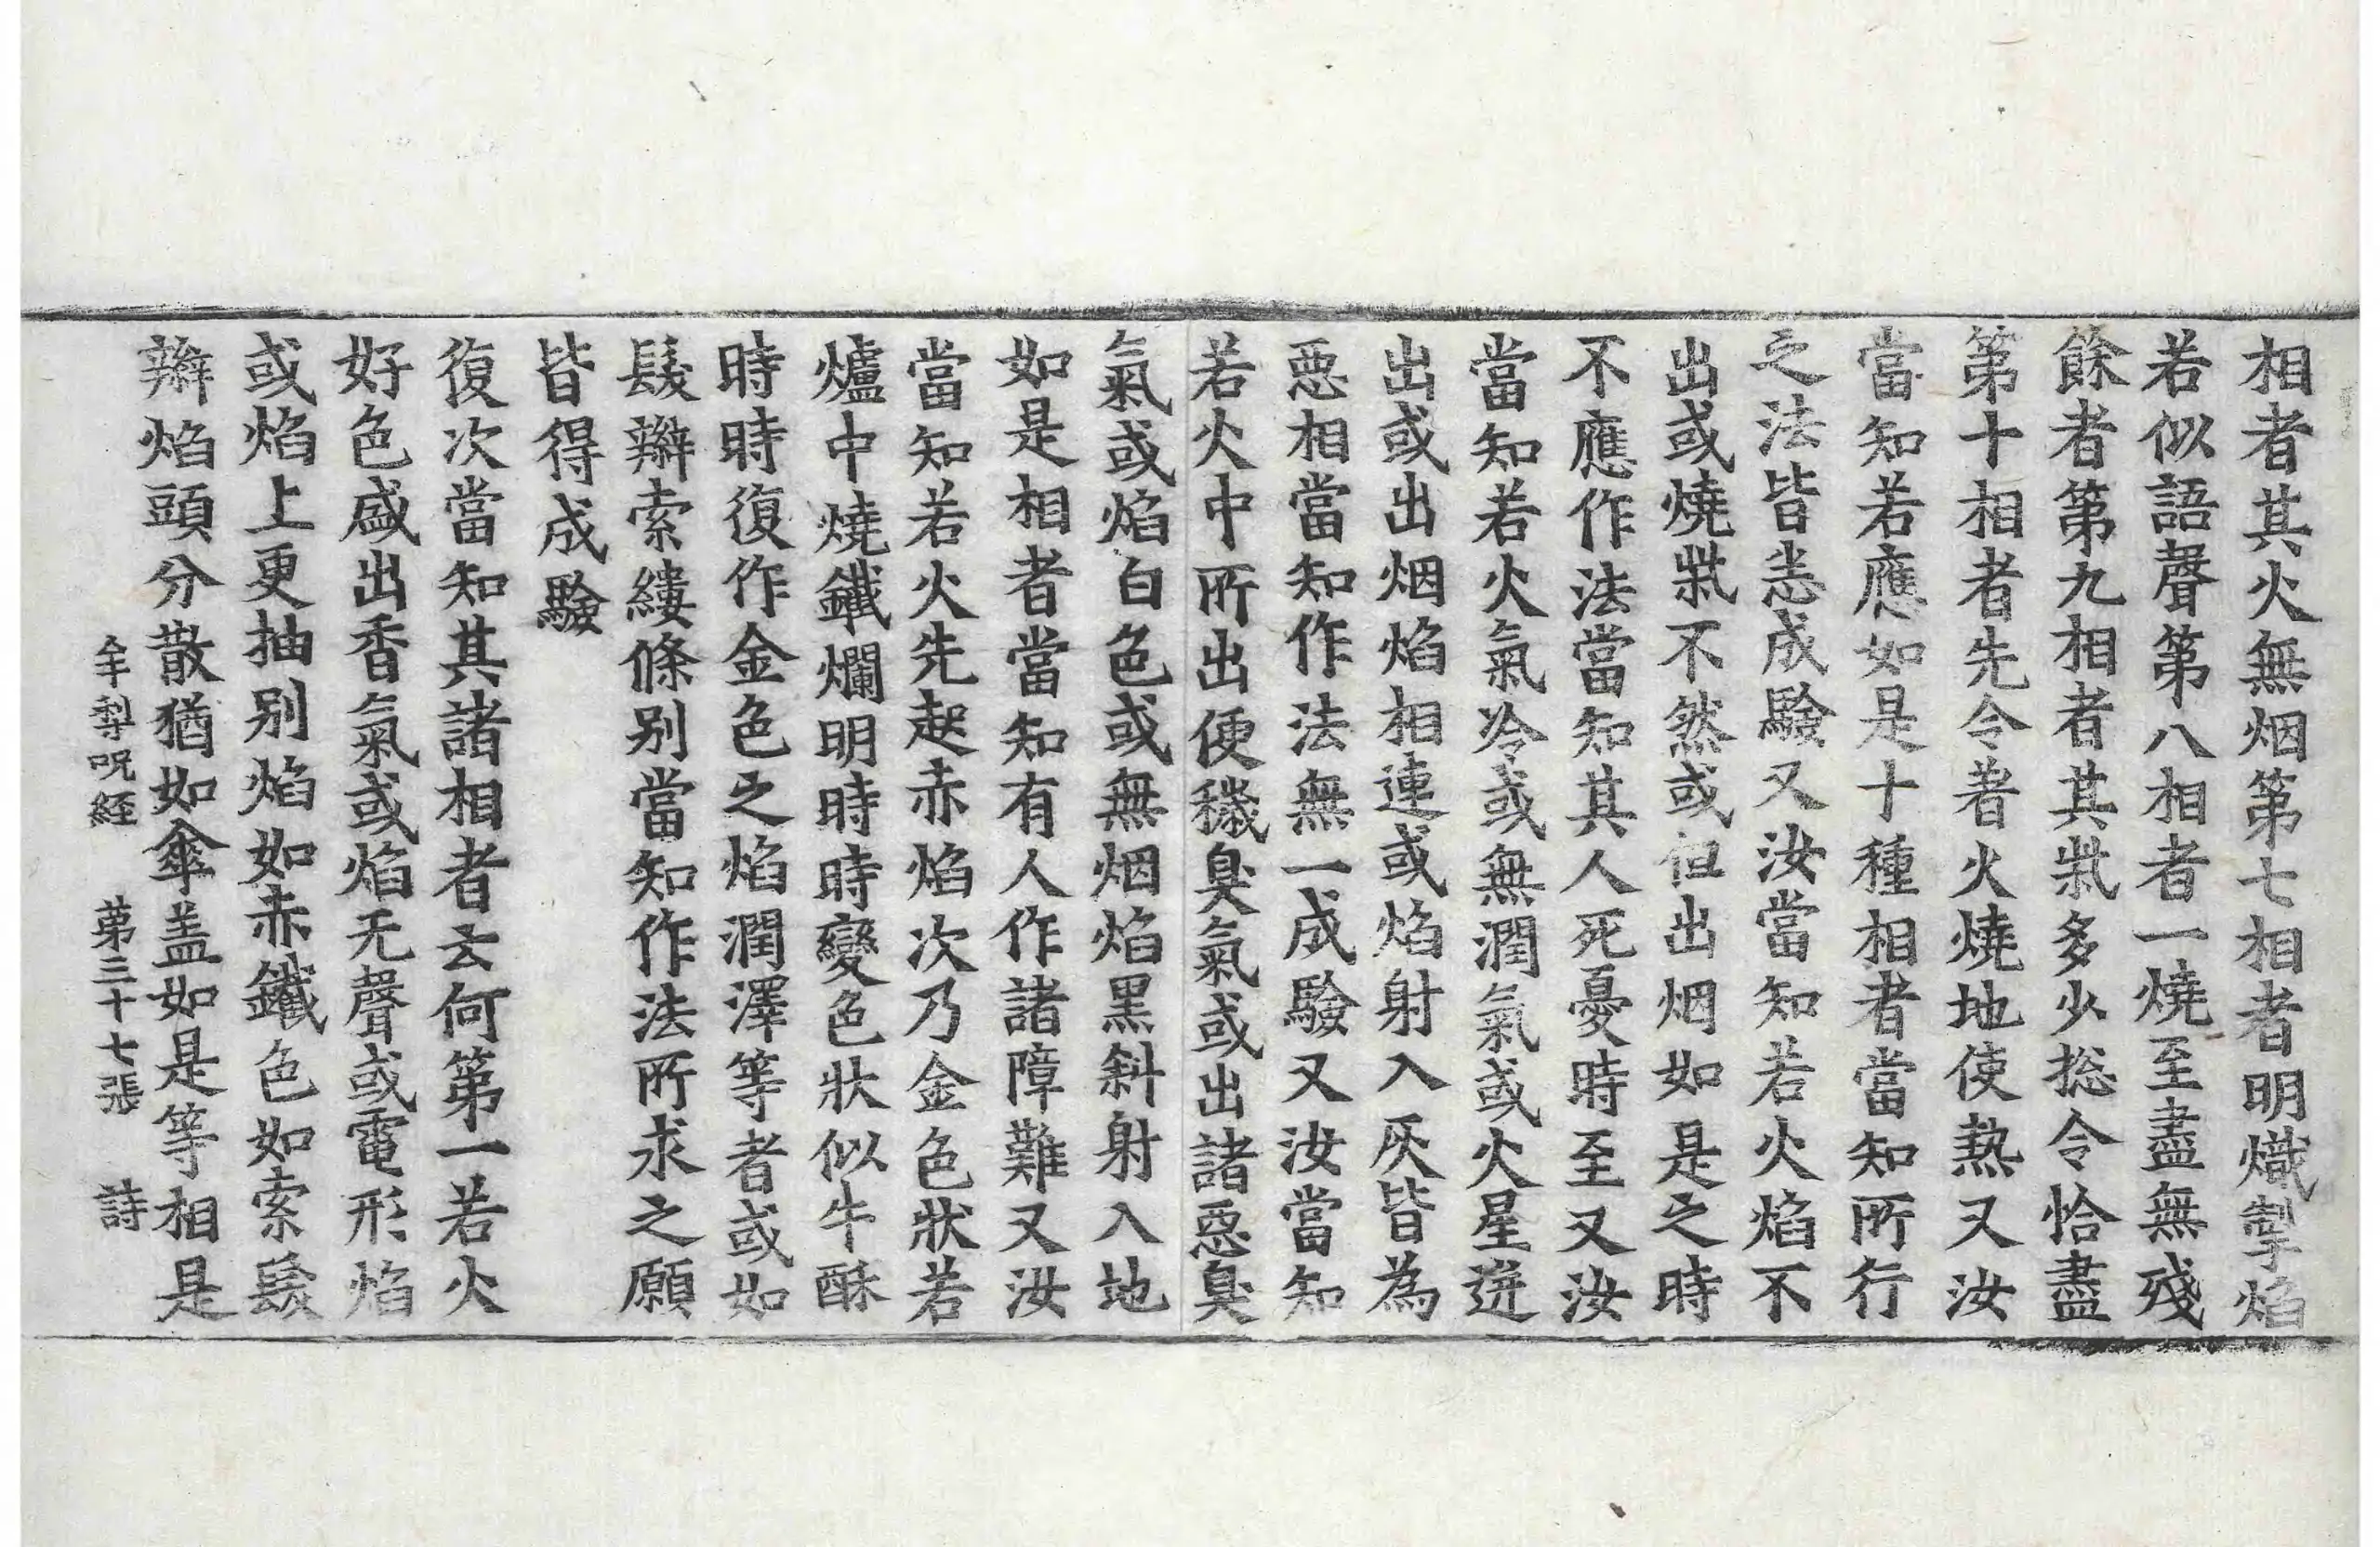 相者其火無烟第七相者明熾掣焰
若似語聲第八相者一燒至盡無殘
餘者第九相者其柴多少揔令恰盡
第十相者先令著火燒地使熱又汝
當知若應如是十種相者當知所行
之法皆悉成驗又汝當知若火焰不
出或燒柴不然或但出烟如是之時
不應作法當知其人死憂時至又汝
當知若火氣冷或無潤氣或火星迸
出或出烟焰相連或焰射入灰皆為
惡相當知作法無一成驗又汝當知
若火中所出便穢臭氣或出諸惡臭
氣或焰白色或無烟焰黑斜射入地
如是相者當知有人作諸障難又汝
當知若火先起赤焰次乃金色狀若
爐中燒鐵爛明時時變色狀似牛酥
時時復作金色之焰潤澤等者或如
髮辮索縷條別當知作法所求之願
皆得成驗
復次當知其諸相者云何第一若火
好色盛出香氣或焰无聲或電形焰
或焰上更抽別焰如赤鐵色如索髮
辮焰頭分散猶如傘盖如是等相是
牟梨呪經 第三十七張 詩